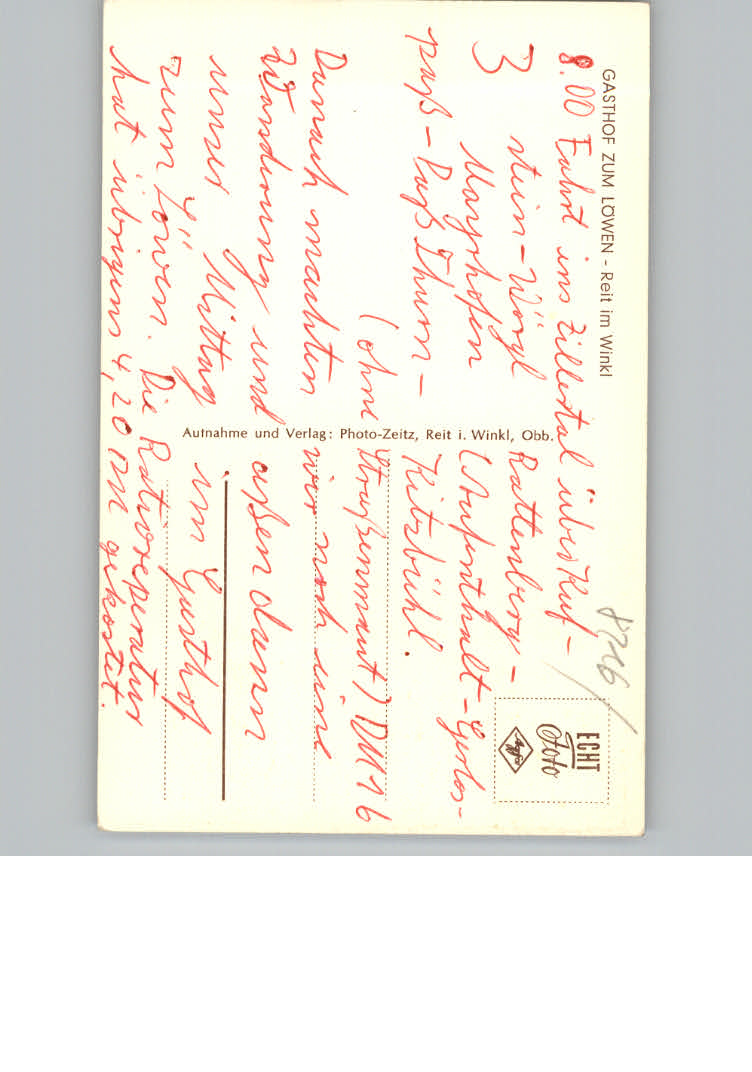 GASTHOF ZUM LÖWEN - Reit im Winkl
8.00 Fahrt ins Zillertal über Kuf-
3 stein - Wörgl Rattenberg -
Mayrhofen (Aufenthalt - Gerlos-
paß - Paß Thurn - Kitzbühl.
(ohne Straßenmaut) DM 16
Danach machten wir noch eine
Wanderung und aßen dann
unser Mittag im Gasthof
zum Löwen. Die Radioreperatur
hat übrigens 4,20 DM gekostet.
Aufnahme und Verlag: Photo-Zeitz, Reit i. Winkl, Obb.
8216/
ECHT
Foto
Agfa